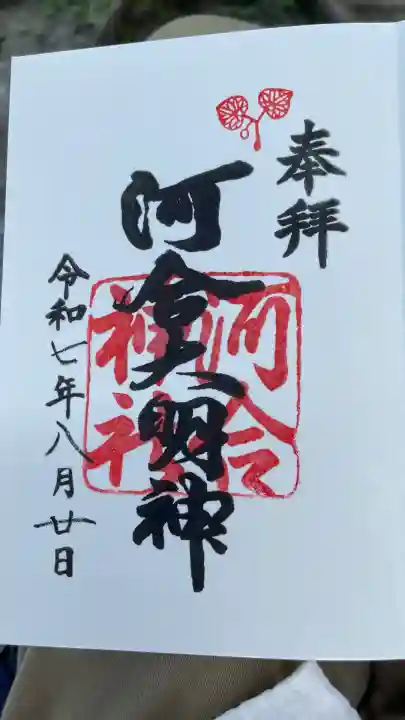 奉拝
河合大明神
河合
神社
令和七年八月廿日